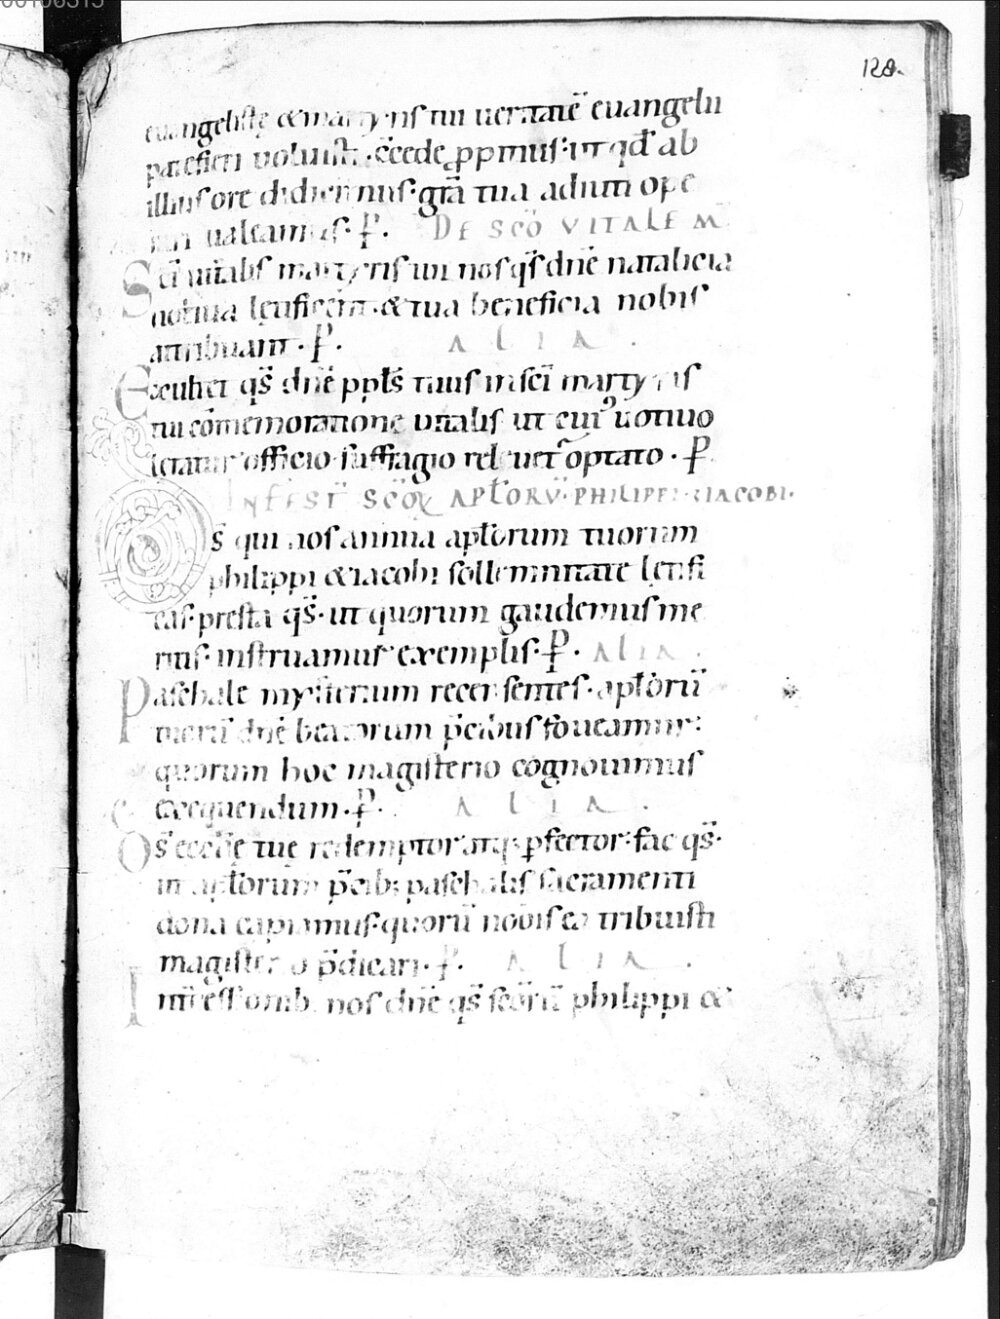 00106515
128.
euangeliste & martyris tui ueritatē euangelii
patefieri uoluisti · c̄cede ꝓpitius · ut qd̄ ab
illius ore didicimus · gr̄a tua adiuti ope
rari ualeamus · P̄ . DE SC̄O VITALE M̄
Sc̄i uitalis martyris tui nos qs̄ dn̄e natalicia
uotiua lętificent · & tua beneficia nobis
attribuant · P̄ . ALIA .
Exultet qs̄ dn̄e ppl̄s tuus in sc̄i martyris
tui cōmemoratione uitalis ut cui⁹ uotiuo
lętatur officio suffragio releuet᷑ optato · P̄
IN FEST̄ SC̄OR̄ APL̄ORV̄ · PHILIPPI · IACOBI ·
Ds̄ qui nos annua apl̄orum tuorum
philippi & iacobi sollemnitate lętifi
cas · presta qs̄ · ut quorum gaudemus me
ritis · instruamur exemplis · P̄ · ALIA .
Paschale mysterium recensentes · apl̄orū
tuorū dn̄e beatorum p̄cibus foueamur :
quorum hoc magisterio cognouimus
exequendum · P̄ . ALIA .
Ds̄ eccl̄ię tuę redemptor atq; ꝑfector · fac qs̄ ·
ut apl̄orum p̄cib; paschalis sacramenti
dona capiamus · quorū nobis ea tribuisti
magisterio p̄dicari · P̄ . ALIA .
Intercess̄ omīb; nos dn̄e qs̄ sc̄orū philippi &